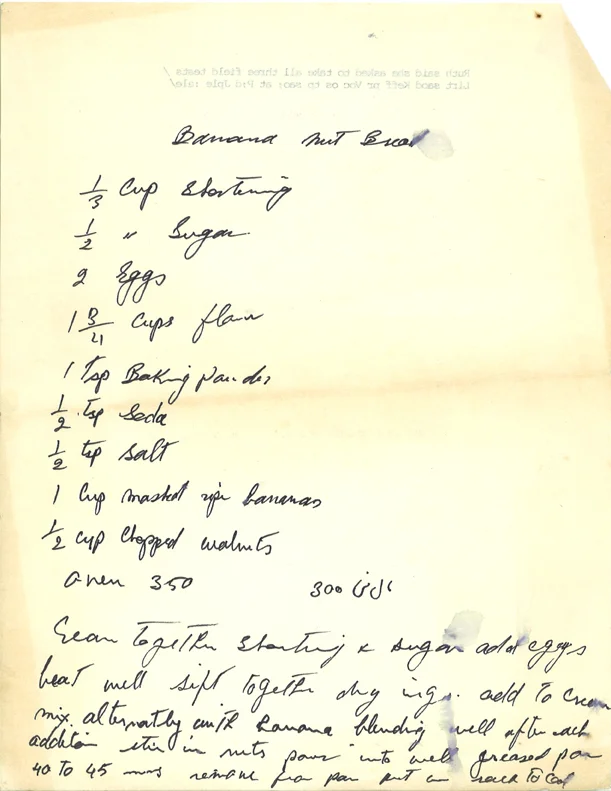 Ruth said she asked to take all three field tests /
Banana nut Bread
1/3 Cup Shortening
1/2 " Sugar
2 Eggs
1 3/4 Cups flour
1 Tsp Baking pauder
1/2 tsp Seda
1/2 tsp Salt
1 Cup mashed ripe bananas
1/2 cup Chopped walnuts
oven 350 300
Cream together Shorting & sugar add eggs
beat well sift together dry ingr. add to Cream
mix. alternatly with banana blending well after each
addition stir in nuts pour into well greased pan
40 to 45 mns remove from pan put on rack to cool